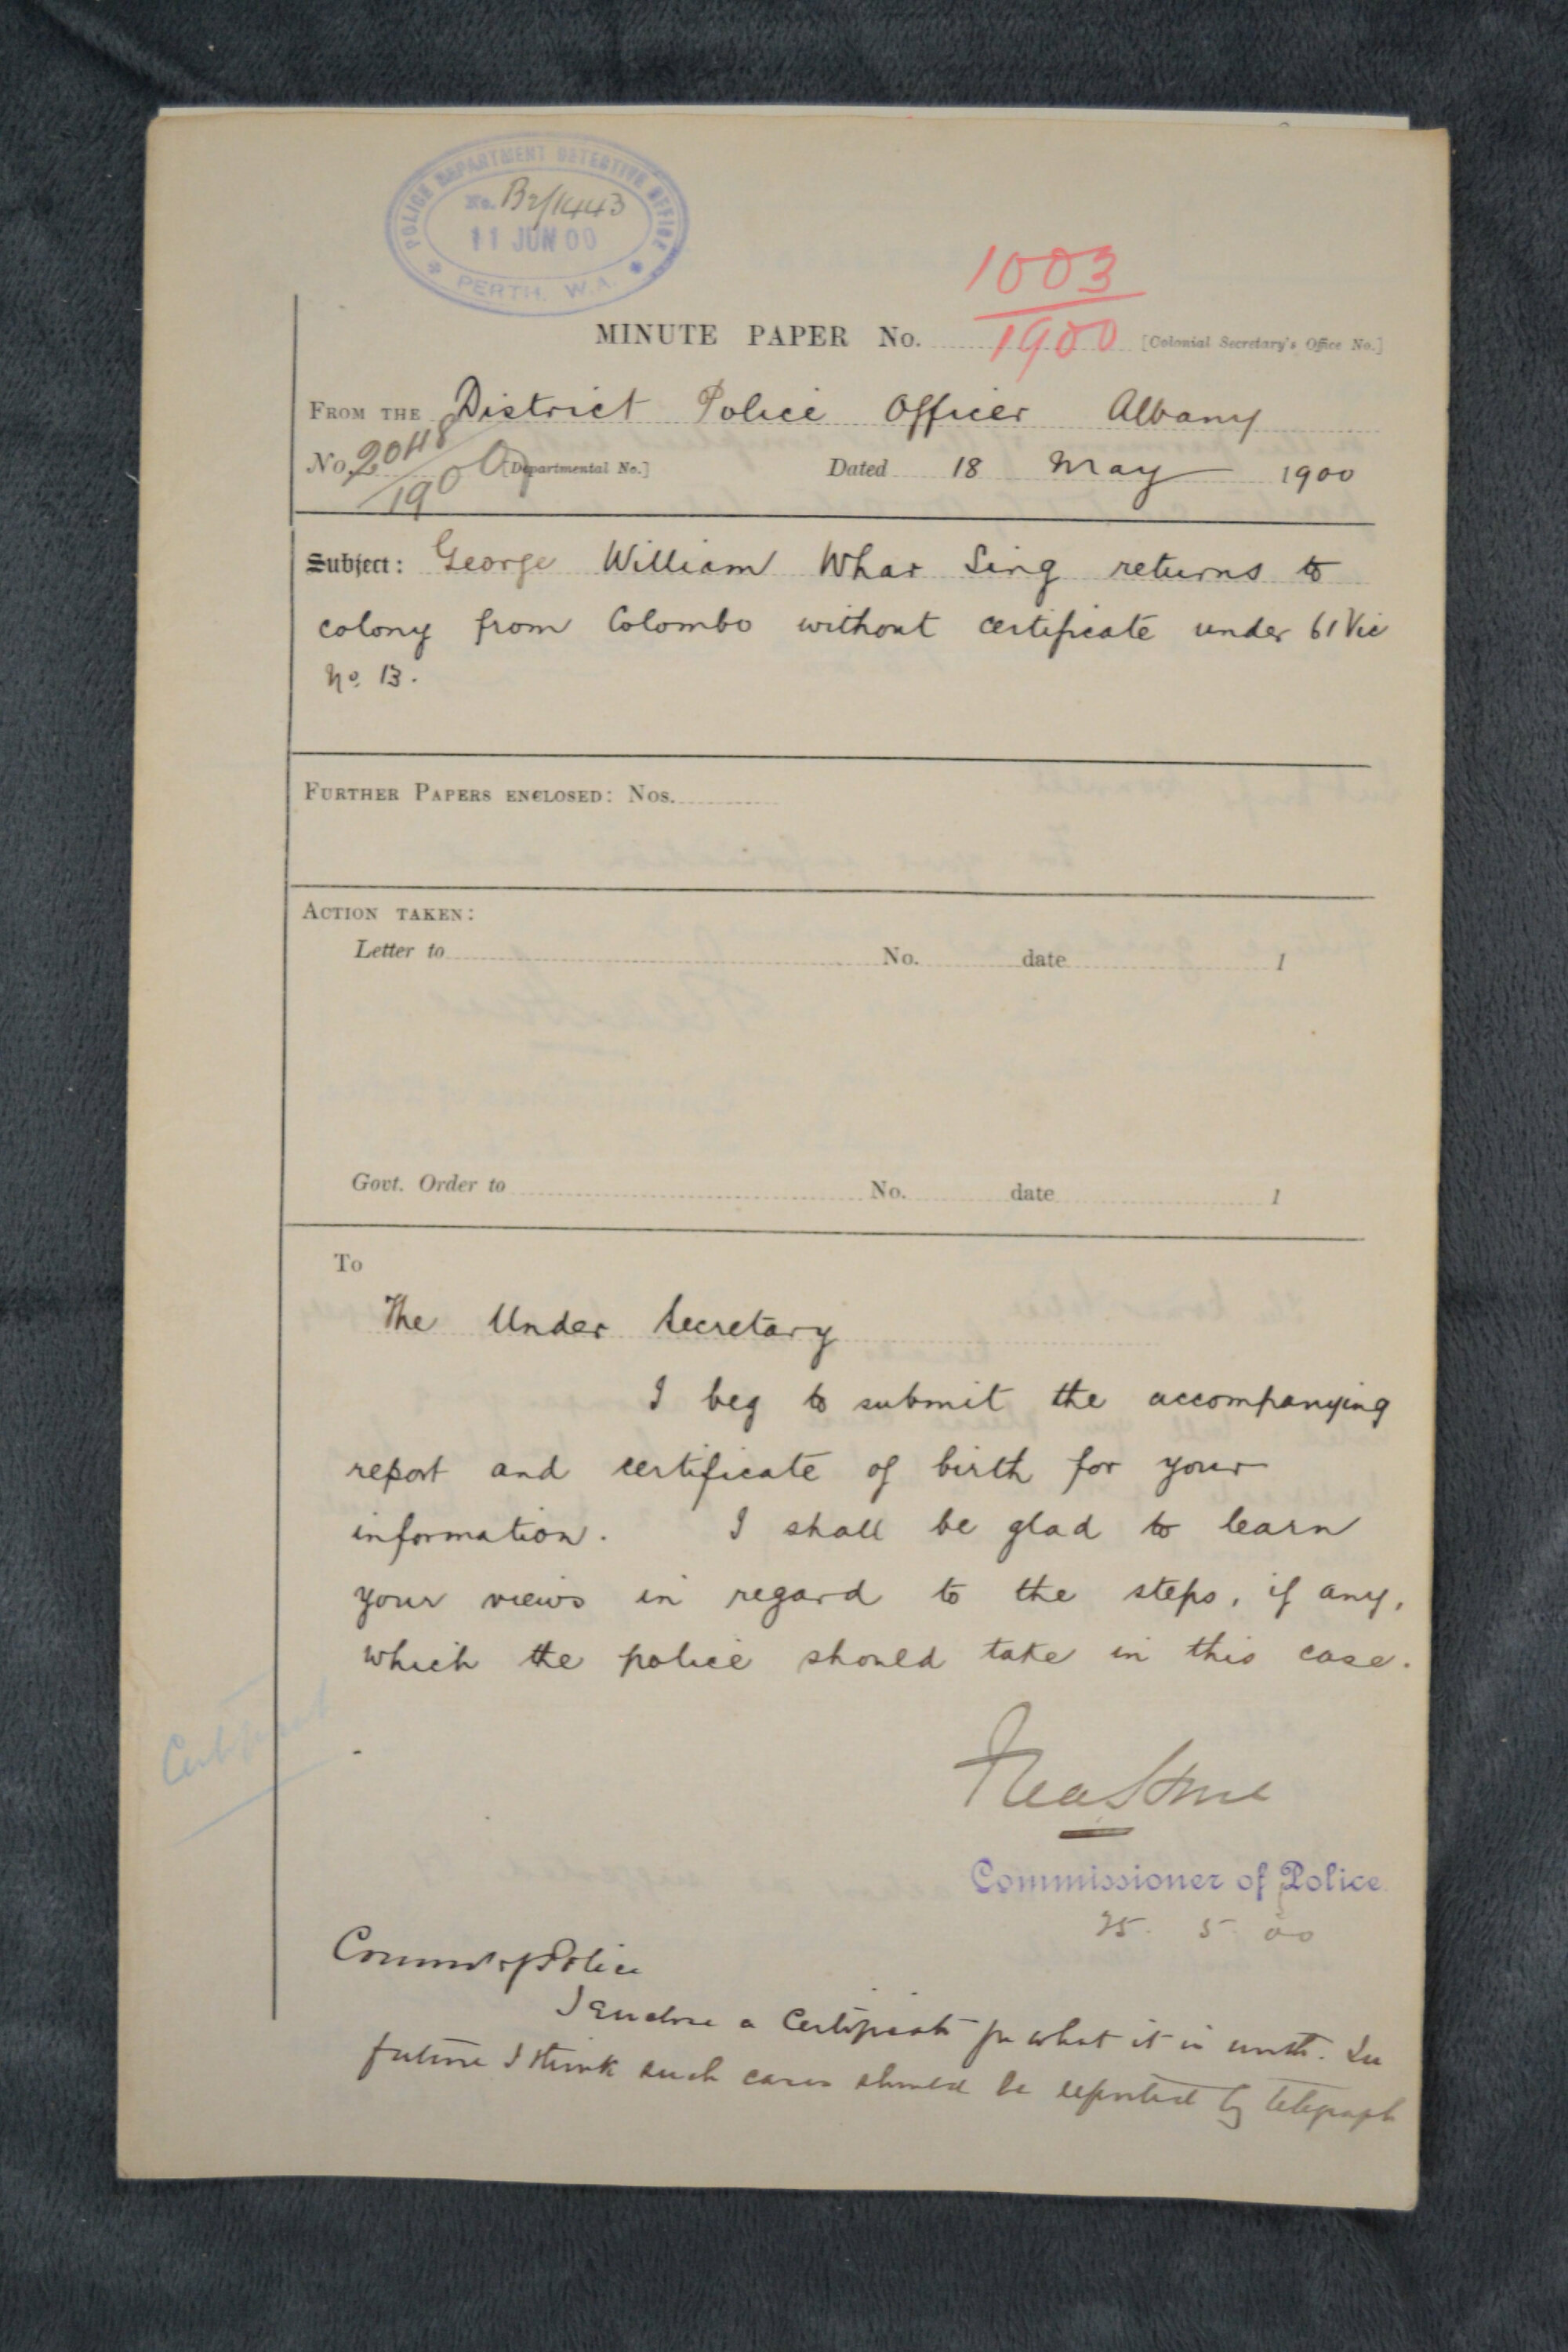 POLICE DEPARTMENT DETECTIVE OFFICE
No. B2/1443
11 JUN 00
PERTH. W.A.
1003
1900
MINUTE PAPER No. [Colonial Secretary's Office No.]
FROM THE District Police Officer Albany
No. 2048/1900 [Departmental No.] Dated 18 May 1900
Subject: George William Whar Sing returns to
colony from Colombo without certificate under 61 Vic
No. 13.
FURTHER PAPERS ENCLOSED: Nos.
ACTION TAKEN:
Letter to No. date 1
Govt. Order to No. date 1
To
The Under Secretary
I beg to submit the accompanying
report and certificate of birth for your
information. I shall be glad to learn
your views in regard to the steps, if any,
which the police should take in this case.
Certificate
Commissioner of Police
25. 5. 00
Commr of Police
I enclose a Certificate for what it is worth. In
future I think such cases should be reported by telegraph